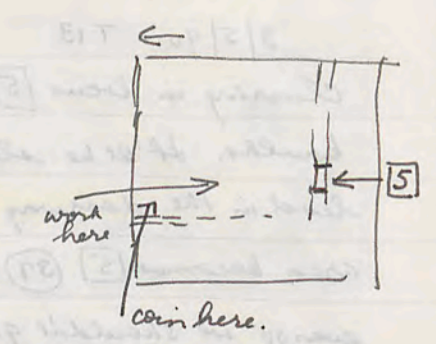 5
work
here
coin here.